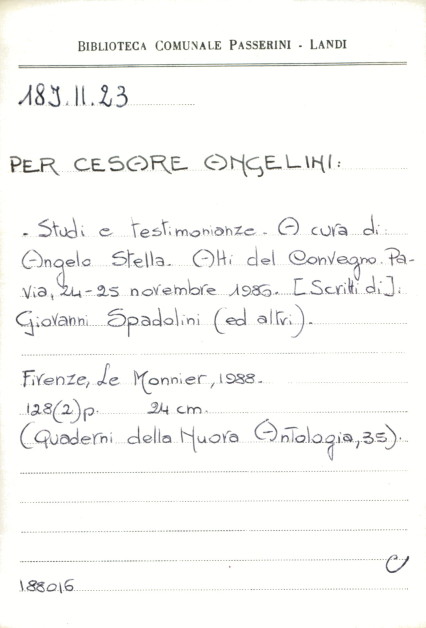 BIBLIOTECA COMUNALE PASSERINI - LANDI
189.II.23
PER CESARE ANGELINI:
. Studi e testimonianze. A cura di
Angelo Stella. Atti del Convegno. Pa-
via, 24-25 novembre 1985. [Scritti di]:
Giovanni Spadolini (ed altri).
Firenze, Le Monnier, 1988.
128(2)p. 24 cm.
(Quaderni della Nuova Antologia, 35).
C
188016